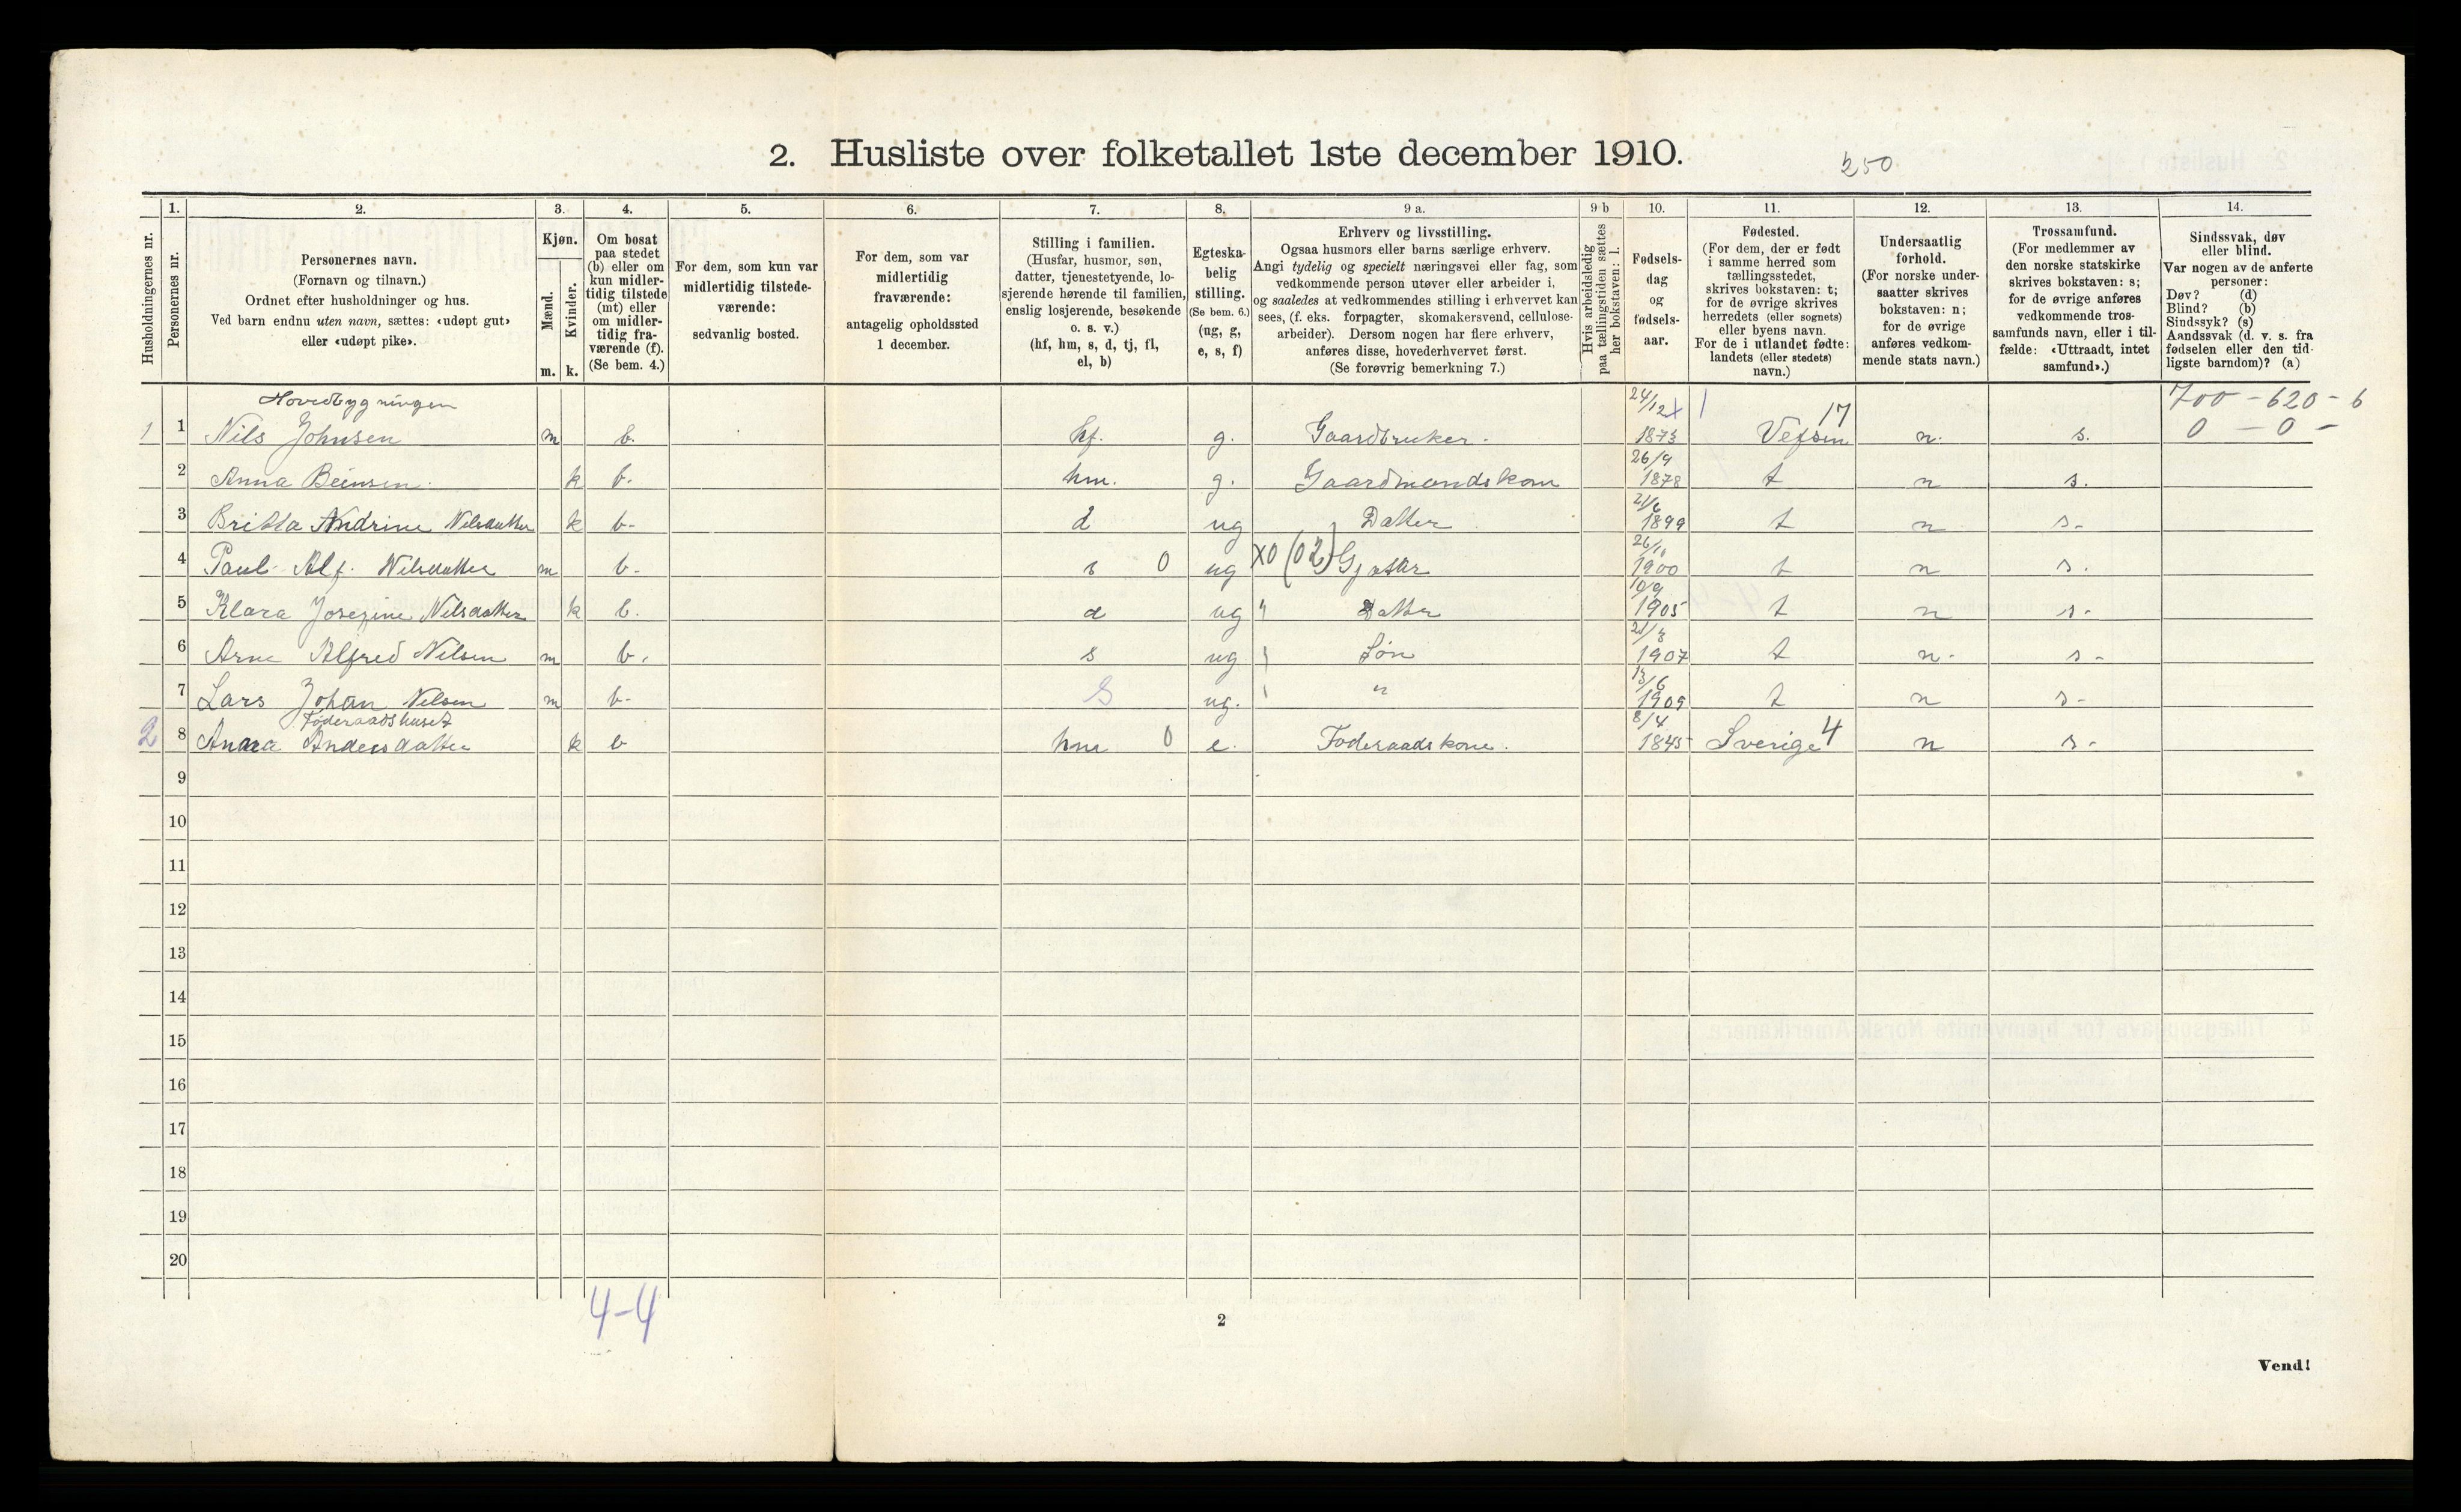 2. Husliste over folketallet 1ste december 1910.
250
Husholdningernes nr.
1.
Personernes nr.
2.
Personernes navn.
(Fornavn og tilnavn.)
Ordnet efter husholdninger og hus.
Ved barn endnu uten navn, sættes: «udøpt gut»
eller «udøpt pike».
3.
Kjøn.
Mænd.
Kvinder.
m. k.
4.
Om bosat
paa stedet
(b) eller om
kun midler-
tidig tilstede
(mt) eller
om midler-
tidig fra-
værende (f).
(Se bem. 4.)
5.
For dem, som kun var
midlertidig tilstede-
værende:
sedvanlig bosted.
6.
For dem, som var
midlertidig
fraværende:
antagelig opholdssted
1 december.
7.
Stilling i familien.
(Husfar, husmor, søn,
datter, tjenestetyende, lo-
sjerende hørende til familien,
enslig losjerende, besøkende
o. s. v.)
(hf, hm, s, d, tj, fl,
el, b)
8.
Egteska-
belig
stilling.
(Se bem. 6.)
(ug, g,
e, s, f)
9 a.
Erhverv og livsstilling.
Ogsaa husmors eller barns særlige erhverv.
Angi tydelig og specielt næringsvei eller fag, som
vedkommende person utøver eller arbeider i,
og saaledes at vedkommendes stilling i erhvervet kan
sees, (f. eks. forpagter, skomakersvend, cellulose-
arbeider). Dersom nogen har flere erhverv,
anføres disse, hovederhvervet først.
(Se forøvrig bemerkning 7.)
9 b
Hvis arbeidsledig
paa tællingstiden sættes
her bokstaven: l.
10.
Fødsels-
dag
og
fødsels-
aar.
11.
Fødested.
(For dem, der er født
i samme herred som
tællingsstedet,
skrives bokstaven: t;
for de øvrige skrives
herredets (eller sognets)
eller byens navn.
For de i utlandet fødte:
landets (eller stedets)
navn.)
12.
Undersaatlig
forhold.
(For norske under-
saatter skrives
bokstaven: n;
for de øvrige
anføres vedkom-
mende stats navn.)
13.
Trossamfund.
(For medlemmer av
den norske statskirke
skrives bokstaven: s;
for de øvrige anføres
vedkommende tros-
samfunds navn, eller i til-
fælde: «Uttraadt, intet
samfund».)
14.
Sindssvak, døv
eller blind.
Var nogen av de anførte
personer:
Døv? (d)
Blind? (b)
Sindssyk? (s)
Aandssvak (d. v. s. fra
fødselen eller den tid-
ligste barndom)? (a)
Hovedbygningen 24/12 17 700 - 620 - 6
1 1 Nils Johnsen m b. hf. g. Gaardbruker. 1873 Vefsen n. s. 0 - 0 -
26/9
2 Anna k b. hm. g. Gaardmandskone 1878 t n s.
21/6
3 Britta Andrine Nilsdatter k b- d ug Datter 1899 t n s-
26/10
4 Paul Alf. Nilsdatter m b- s 0 ug X0 (02) Gjætar 1900 t n s.
10/9
5 Klara Josefine Nilsdatter k b. d ug " Datter 1905 t n s-
21/3
6 Arne Alfred Nilsen m b. s ug Søn 1907 t n- s-
13/6
7 Lars Johan Nilsen m b- S ug. " 1909 t n s-
Føderaadshuset 8/4
2 8 Anna Andersdatter k b hm 0 e. Føderaadskone. 1845 Sverige 4 n s-
9
10
11
12
13
14
15
16
17
18
19
20
4-4
2
Vend!